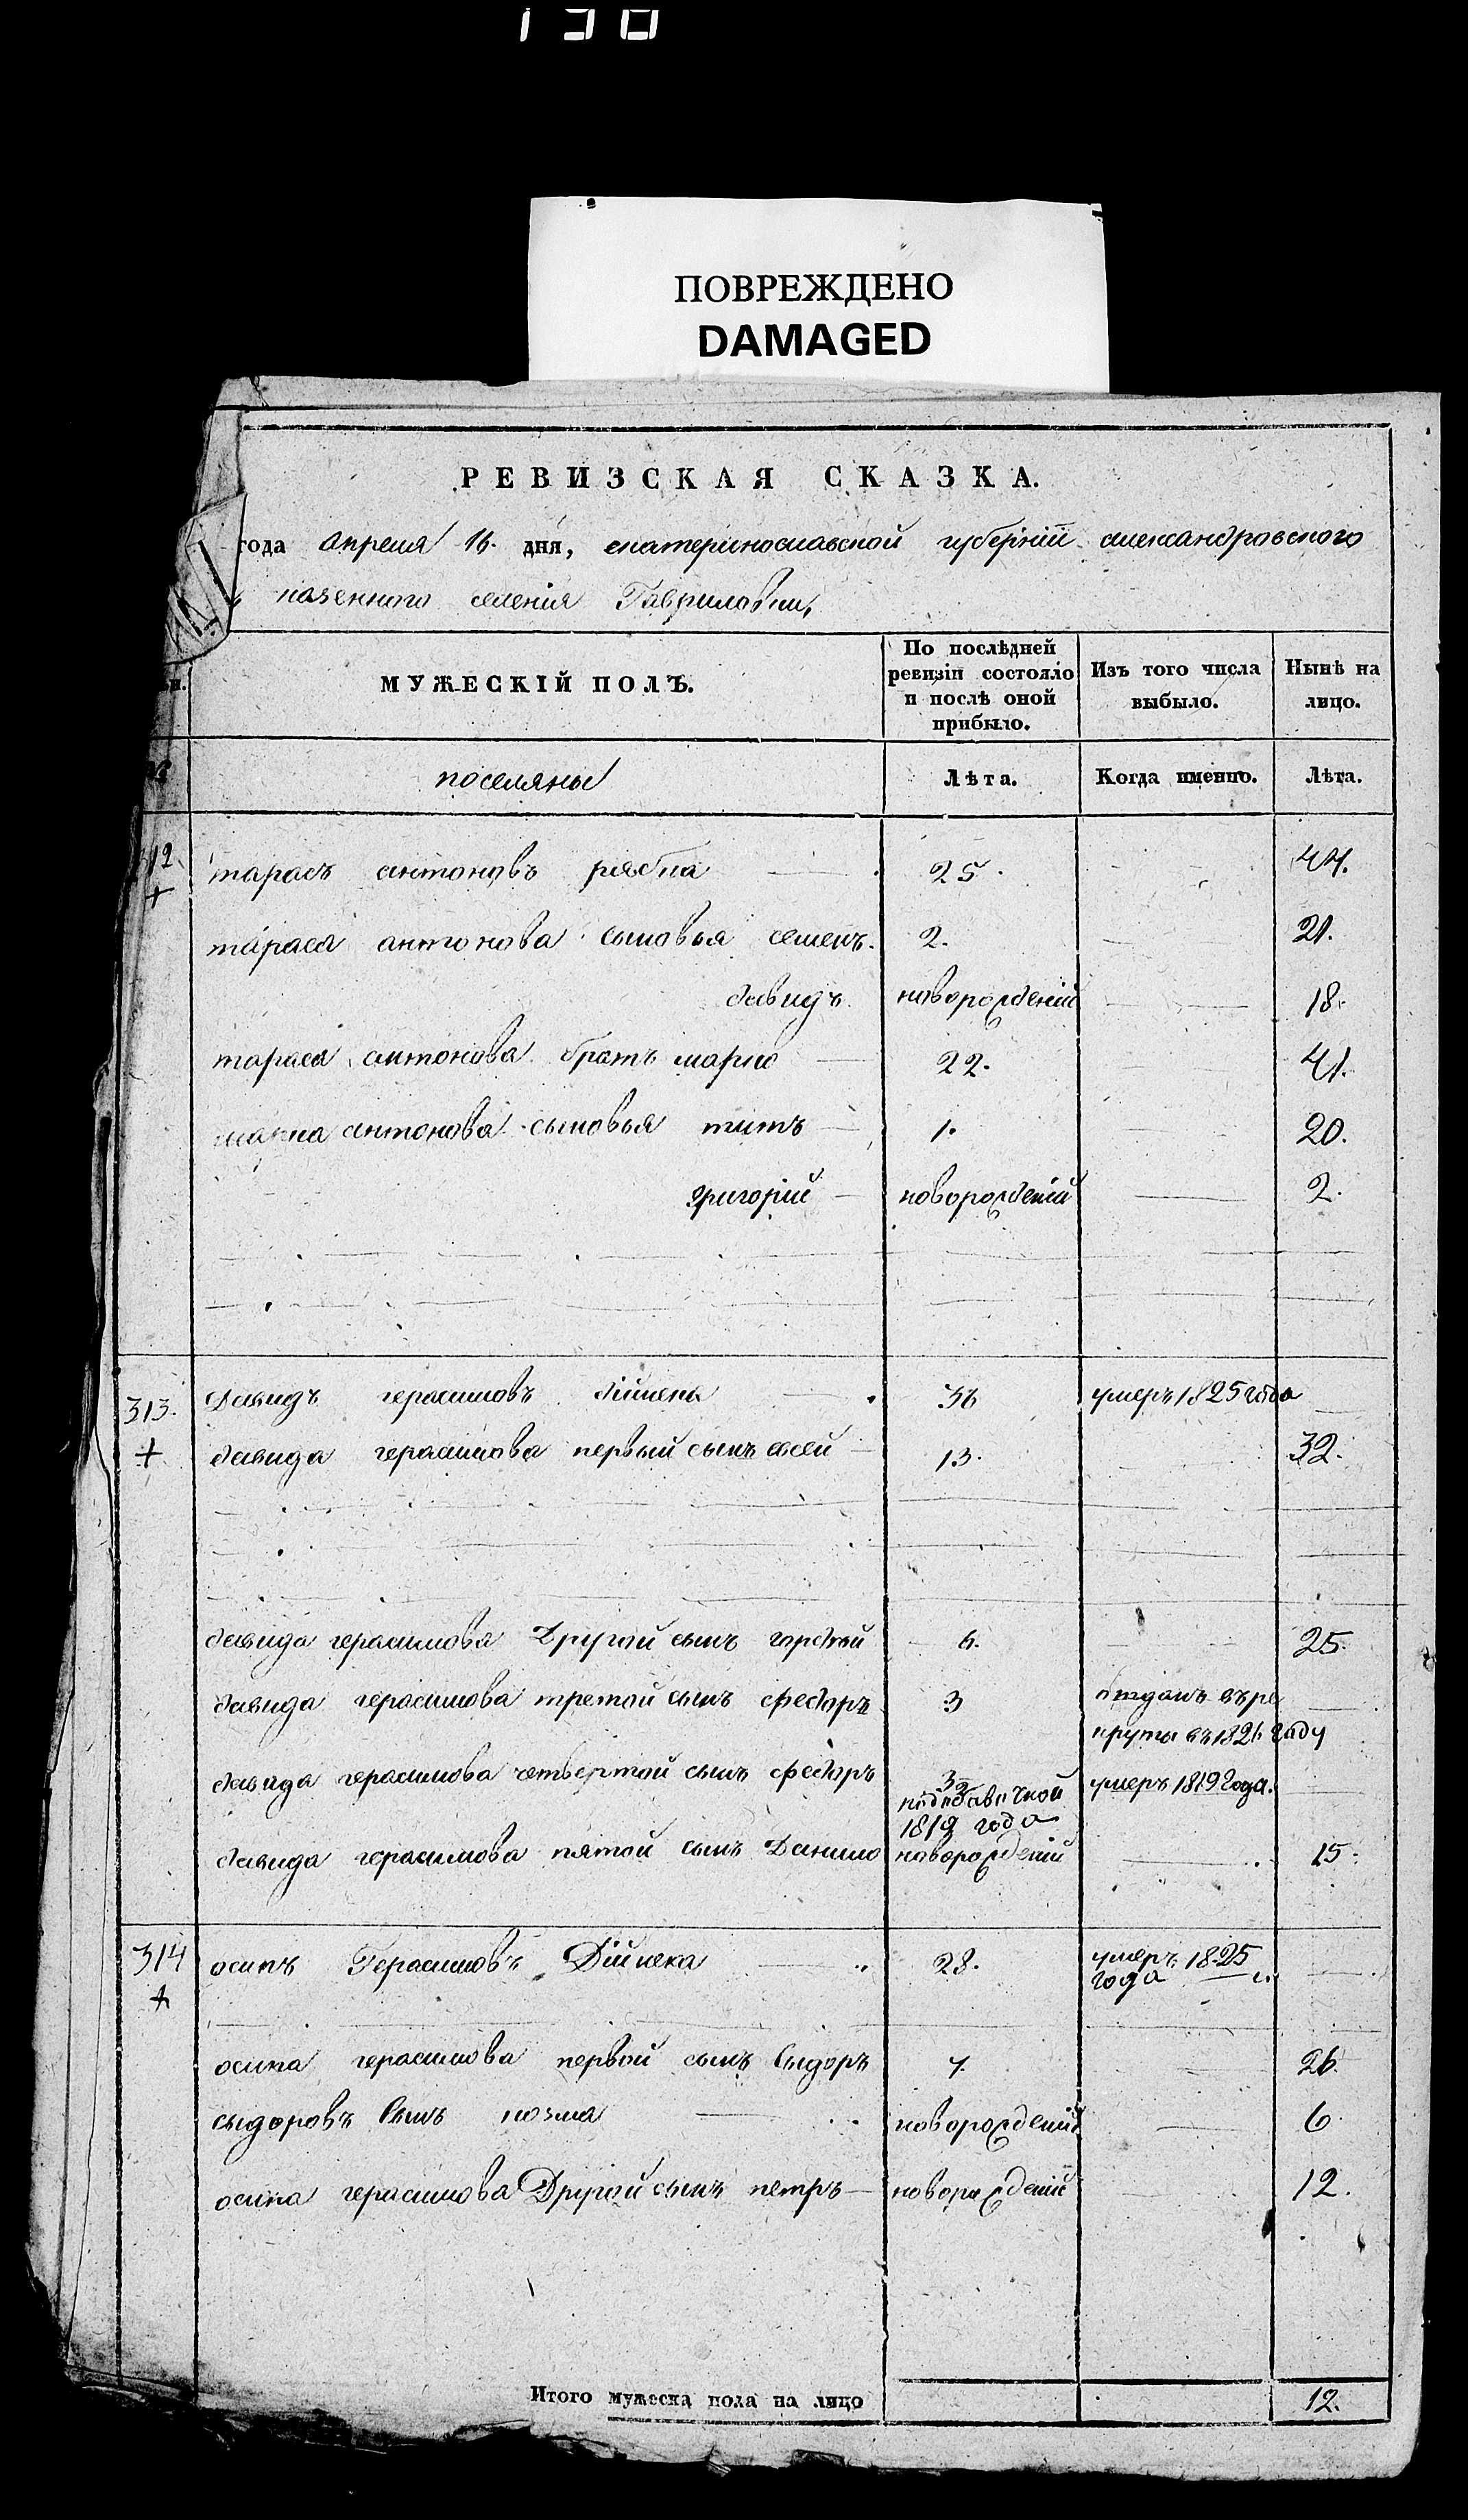 130
ПОВРЕЖДЕНО
DAMAGED
РЕВИЗСКАЯ СКАЗКА.
года апреля 16. дня, екатеринославской губерній александровского
казенного селенія Гавриловки,
МУЖЕСКІЙ ПОЛЪ.
По послѣдней ревизіи состояло и послѣ оной прибыло.
Изъ того числа выбыло.
Нынѣ на лицо.
поселяны Лѣта. Когда именно. Лѣта.
312 тарасъ антоновъ рябка 25. 44.
+
тараса антонова сыновья семенъ. 2. 21.
давидъ. новорожденій 18.
тараса антонова братъ марко 22. 41.
марка антонова сыновья титъ 1. 20.
григорій новорожденій 2.
313. Давидъ герасимовъ дійнека 36 умеръ 1825 года
+ давида герасимова первый сынъ евсей 13. 32.
давида герасимова Другой сынъ гордѣй 6. 25.
давида герасимова третой сынъ федоръ 3 отданъ въ ре
круты въ 1826 году
давида герасимова четвертой сынъ федоръ 3 умеръ 1819 года.
1819 года
давида герасимова пятой сынъ Данило новорожденій 15.
314 осипъ Герасимовъ Дійнека 28. умеръ 1825
+ года
осипа герасимова первой сынъ Сыдоръ 7. 26.
сыдоровъ Сынъ козма новорожденій 6.
осипа герасимова Другой сынъ петръ новорожденій 12.
Итого мужеска пола на лицо 12.